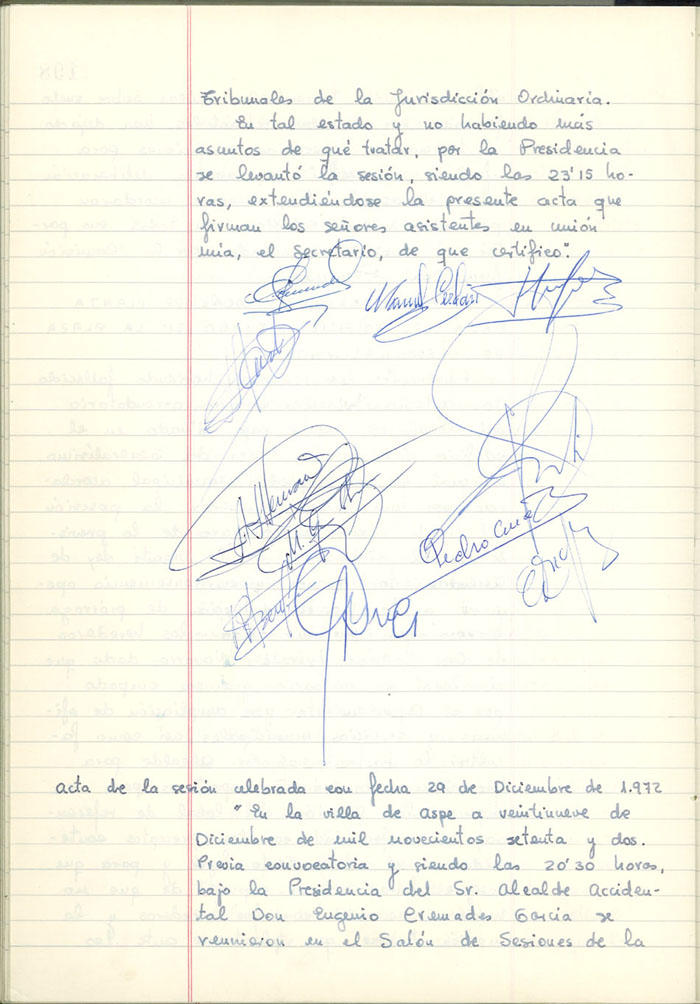 Tribunales de la Jurisdicción Ordinaria.
En tal estado y no habiendo más
asuntos de qué tratar, por la Presidencia
se levantó la sesión, siendo las 23'15 ho-
ras, extendiéndose la presente acta que
firman los señores asistentes en unión
mía, el Secretario, de que certifico".
Manuel
Pedro
acta de la sesión celebrada con fecha 29 de Diciembre de 1.972
" En la villa de aspe a veintinueve de
Diciembre de mil novecientos setenta y dos.
Previa convocatoria y siendo las 20'30 horas,
bajo la Presidencia del Sr. Alcalde Acciden-
tal Don Eugenio Cremades García se
reunieron en el Salón de Sesiones de la